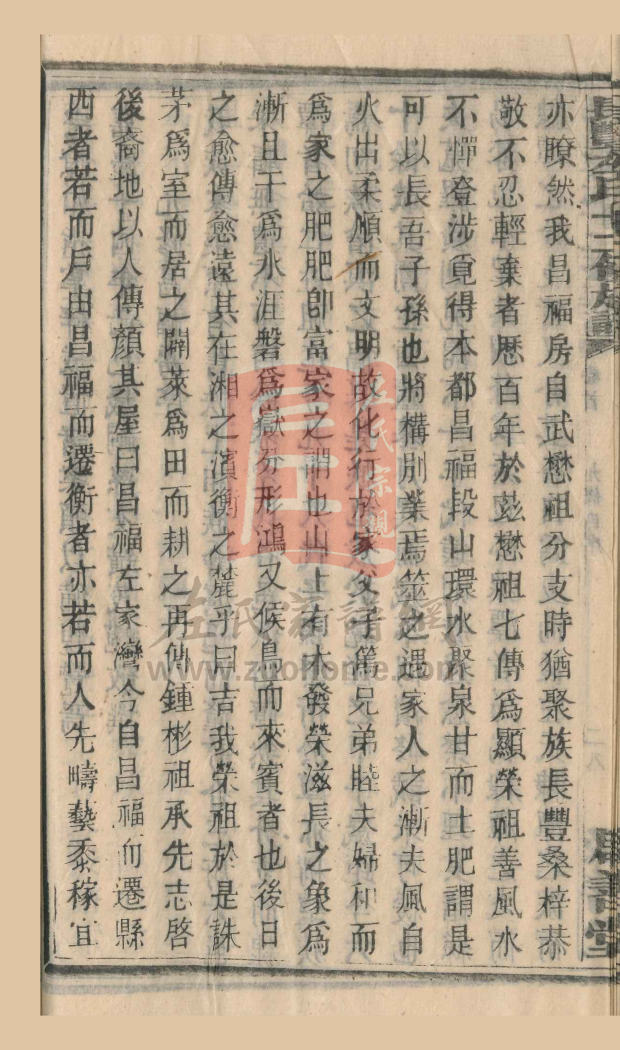 亦瞭然我昌福房自武懋祖分支時猶聚族長豐桑梓恭
敬不忍輕棄者歴百年於玆懋祖七傳爲顯榮祖善風水
不憚登涉覓得本都昌福段山環水聚泉甘而土肥謂是
可以長吾子孫也將構別業焉筮之遇家人之漸夫風自
火出柔順而文明故化行於家父子篤兄弟睦夫婦和而
爲家之肥肥卽富家之謂也山上有木發榮滋長之象爲
漸且干爲水涯磐爲嶽分形鴻又候鳥而來賓者也後日
之愈傳愈遠其在湘之濱衡之麓乎曰吉我榮祖於是誅
茅爲室而居之闢萊爲田而耕之再傳鍾彬祖承先志啓
後裔地以人傳顏其屋曰昌福左家灣今自昌福而遷縣
西者若而戶由昌福而遷衡者亦若而人先疇藝黍稼宜
左氏宗親
左氏家譜網
www.zuohome.com